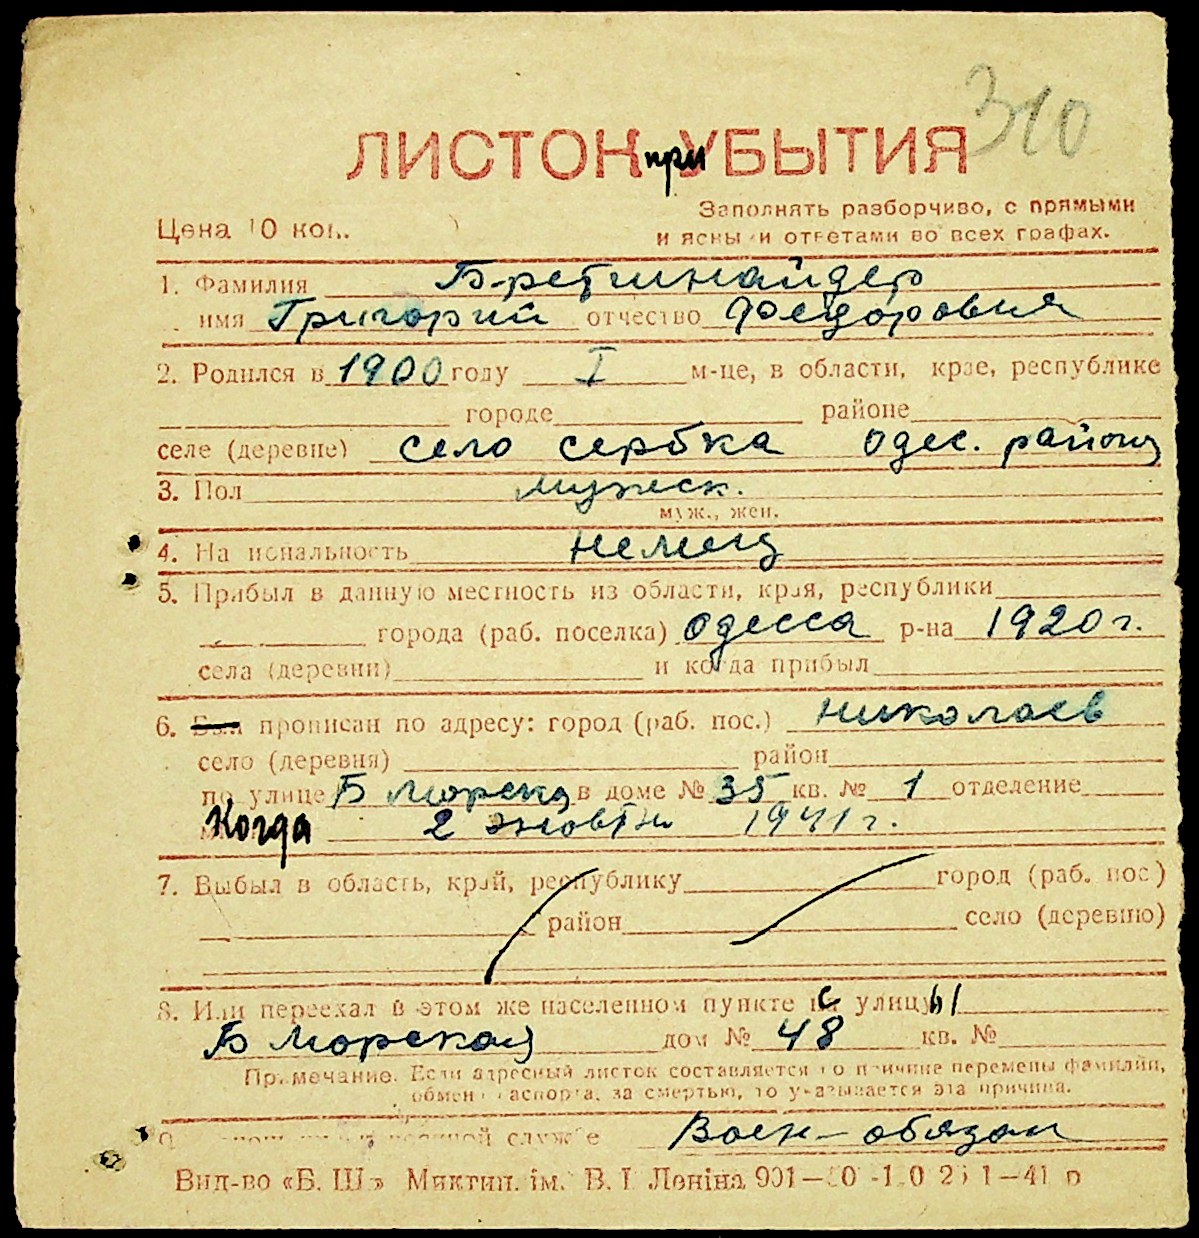 310
ЛИСТОК при УБЫТИЯ
Цена 10 коп.
Заполнять разборчиво, с прямыми
и ясными ответами во всех графах.
1. Фамилия Бретшнайдер
имя Григорий отчество Федоровия
2. Родился в 1900 году I м-це, в области, крае, республике
городе районе
селе (деревне) село сербка Одес. район
3. Пол мужеск.
муж., жен.
4. Национальность немец
5. Прибыл в данную местность из области, края, республики
города (раб. поселка) Одесса р-на 1920 г.
села (деревни) и когда прибыл
6. Был прописан по адресу: город (раб. пос.) Николаев
село (деревня) район
по улице Б Морска в доме № 35 кв. № 1 отделение
Когда 2 жовтн 1941 г.
7. Выбыл в область, край, республику город (раб. пос.)
район село (деревню)
8. Или переехал в этом же населенном пункте с улицы
Б Морская дом № 48 кв. №
Примечание. Если адресный листок составляется по причине перемены фамилии,
обмена паспорта, за смертью, то указывается эта причина.
службе Воен-обязан
Вид-во «Б. Ш.» Миктип. ім. В. І. Леніна 901